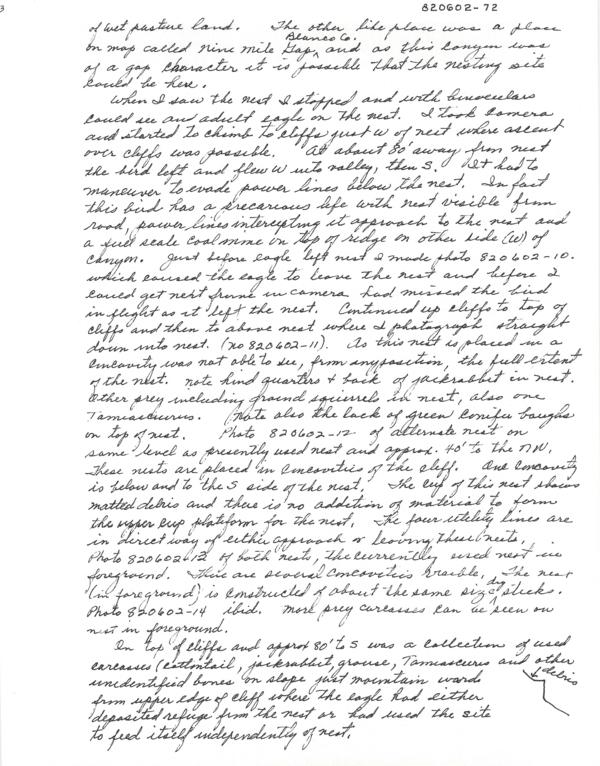 3
820602-72
of wet pasture land. The other like place was a place
on map called Nine Mile Gap, Blanco Co. and as this canyon was
of a gap character it is possible that the nesting site
could be here.
When I saw the nest I stopped and with binoculars
could see and adult eagle on the nest. I took camera
and started to climb to cliffs just W of nest where ascent
over cliffs was possible. At about 80' away from nest
the bird left and flew W into valley, then S. It had to
maneuver to evade power lines below the nest. In fact
this bird has a precarious life with nest visible from
road, power lines intercepting it approach to the nest and
a full scale coal mine on top of ridge on other side (W) of
canyon. Just before eagle left nest I made photo 820602-10.
which caused the eagle to leave the nest and before I
could get next frame in camera had missed the bird
in flight as it left the nest. Continued up cliffs to top of
cliffs and then to above nest where I photograph straight
down into nest. (no 820602-11). As this nest is placed in a
concavity was not able to see, from any position, the full extent
of the nest. Note hind quarters & back of jackrabbit in nest.
Other prey including ground squirrels in nest, also one
Tamiasciurus. Note also the lack of green conifer boughs
on top of nest. Photo 820602-12 of alternate nest on
same level as presently used nest and approx. 40' to the NW.
These nests are placed in concavities of the cliff. One concavity
is below and to the S side of the nest. The cup of this nest shows
matted debris and there is no addition of material to form
the upper cup platform for the nest. The four utility lines are
in direct way of either approach or leaving these nests.
Photo 820602-13 of both nests, the currently used nest in
foreground. There are several concavities visible. The nest
(in foreground) is constructed of about the same size dry sticks.
Photo 820602-14 ibid. More prey carcasses can be seen on
nest in foreground.
On top of cliffs and approx 80' to S was a collection of used
carcasses (cottontail, jackrabbit, grouse, Tamiasciurus and other
unidentified bones on slope just mountain wards debris
from upper edge of cliff where the eagle had either
deposited refuge from the nest or had used the site
to feed itself independently of nest.